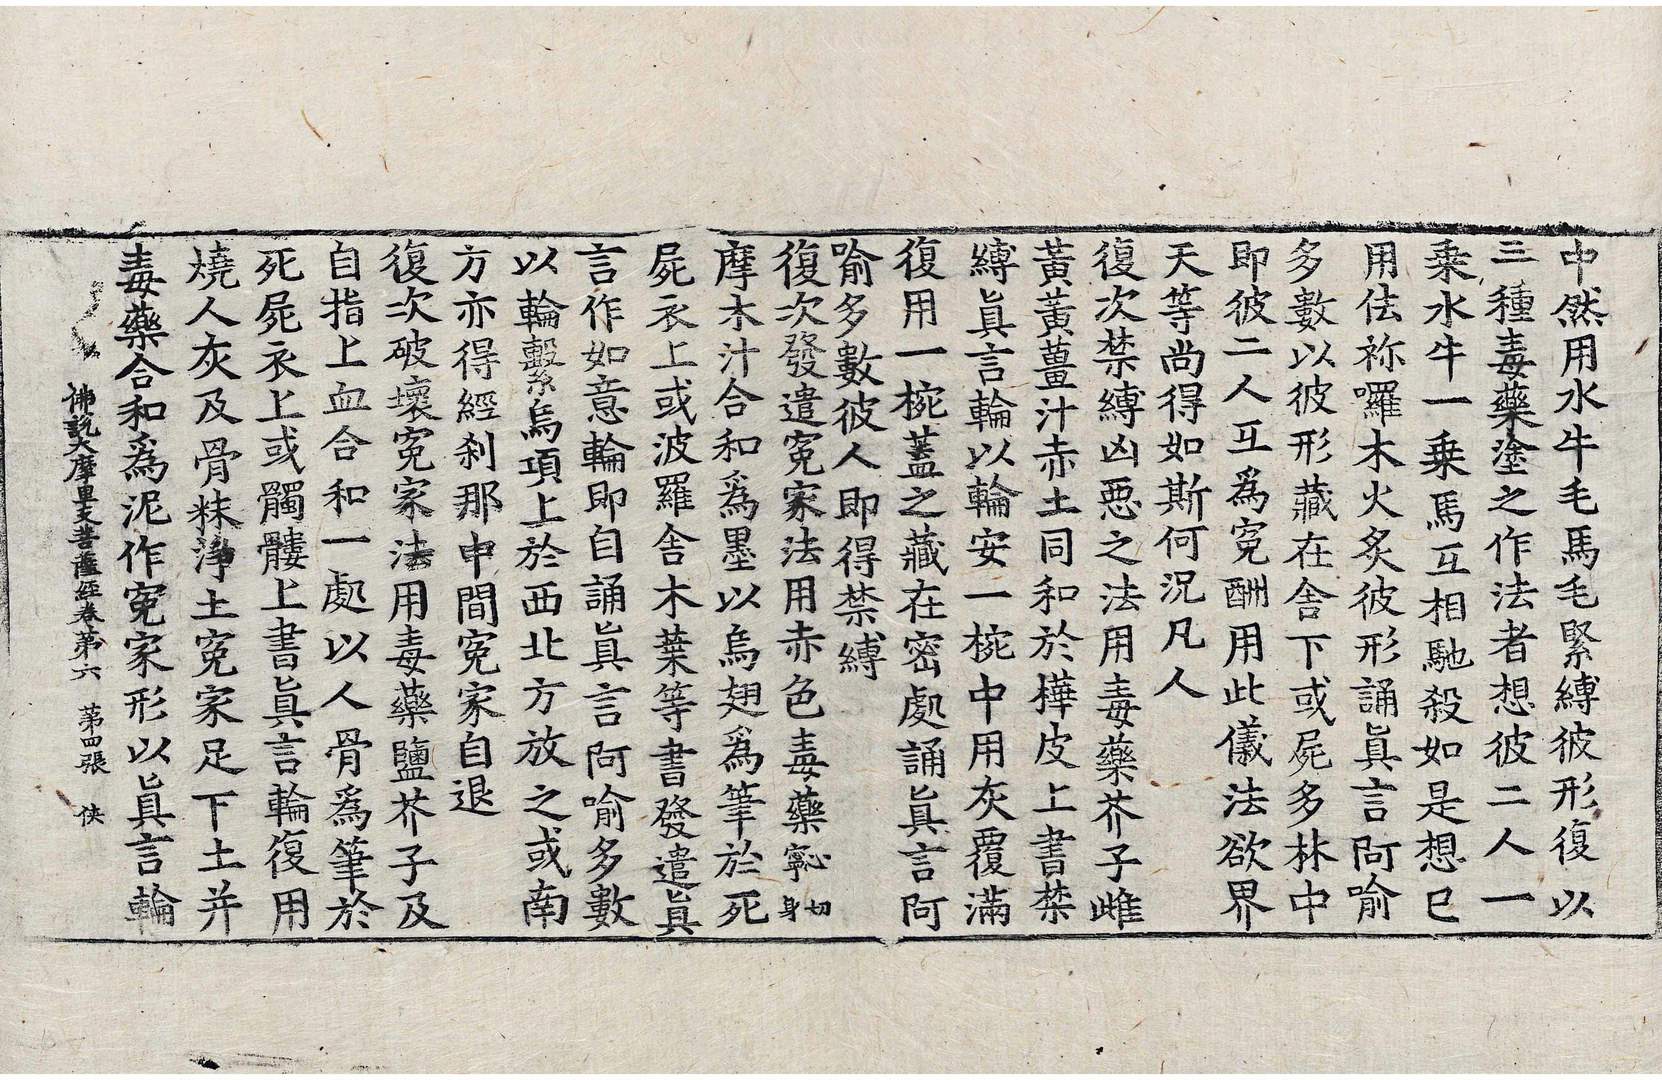 中然用水牛毛馬毛緊縛彼形復以
三種毒藥塗之作法者想彼二人一
乗水牛一乗馬互相馳殺如是想已
用佉祢囉木火炙彼形誦眞言阿喻
多數以彼形藏在舍下或屍多林中
即彼二人互爲寃酬用此儀法欲界
天等尚得如斯何況凡人
復次禁縛凶惡之法用毒藥芥子雌
黃黃薑汁赤土同和於樺皮上書禁
縛眞言輪以輪安一椀中用灰覆滿
復用一椀蓋之藏在密處誦眞言阿
喻多數彼人即得禁縛
復次發遣寃家法用赤色毒藥寧切身
摩木汁合和爲墨以烏翅爲筆於死
屍衣上或波羅舍木葉等書發遣眞
言作如意輪即自誦眞言阿喻多數
以輪繫烏項上於西北方放之或南
方亦得經刹那中間寃家自退
復次破壞寃家法用毒藥鹽芥子及
自指上血合和一處以人骨爲筆於
死屍衣上或髑髏上書眞言輪復用
燒人灰及骨粖淨土寃家足下土并
毒藥合和爲泥作寃家形以眞言輪
佛說大摩里支菩薩經卷第六 第四張 俠